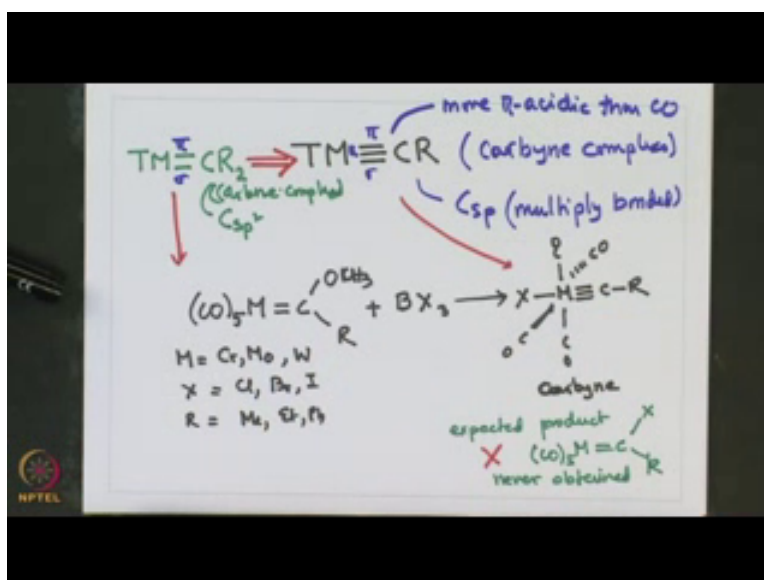 more π-acidic than CO
π π
TM=CR₂ ⇒ TM≡CR (Carbyne complex)
σ σ
(Carbene-complex)
Csp²
Csp (multiply bonded)
(CO)₅M=C OCH₃ R + BX₃ → X-M≡C-R
CO
C
O
C
O
M = Cr, Mo, W
X = Cl, Br, I
R = Me, Et, Ph
Carbyne
expected product
X (CO)₅M=C X R
never obtained
NPTEL